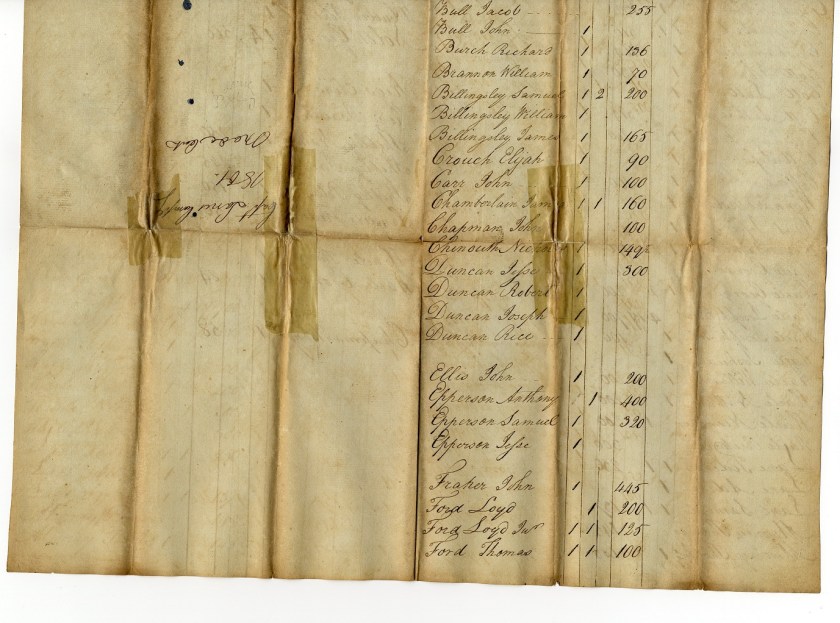 Bull Jacob 255
Bull John 1
Burch Richard 1 136
Brannon William 1 70
Billingsley Samuel 1 2 200
Billingsley William 1
Billingsley James 1 165
Crouch Elijah 1 90
Carr John 1 100
Chamberlain James 1 1 160
Chapman John 100
Chinouth 1 149½
Duncan Jesse 1 300
Duncan Robert 1
Duncan Joseph 1
Duncan Rice 1
Ellis John 1 200
Epperson Anthony 1 400
Epperson Samuel 1 320
Epperson Jesse 1
Fraker John 1 445
Ford Loyd 1 200
Ford Loyd Junr 1 1 125
Ford Thomas 1 1 100